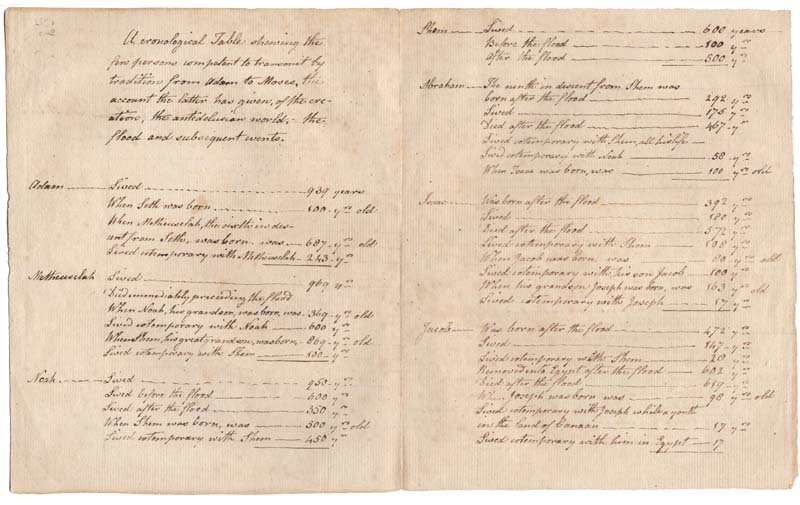 A cronological Table shewing the
few persons competent to transmit by
tradition from Adam to Moses, the
account the latter has given, of the cre-
ation, the antedeluvian world, the
flood and subsequent events.
Adam Lived 939 years
When Seth was born 130 yrs old
When Metheuselah, the in des-
cent from Seth, was born, was 687 yrs old
Lived cotemporary with Metheuselah 243 yrs
Metheuselah Lived 969 yrs
Died immediately preceding the flood
When Noah, his grandson, was born, was 369 yrs old
Lived cotemporary with Noah 600 yrs
When Shem, his great grandson, was born, 869 yrs old
Lived cotemporary with Shem 100 yrs
Noah Lived 950 yrs
Lived before the flood 600 yrs
Lived after the flood 350 yrs
When Shem was born, was 500 yrs old
Lived cotemporary with Shem 450 yrs
Shem Lived 600 years
Before the flood 100 yrs
After the flood 500 yrs
Abraham The ninth in descent from Shem was
born after the flood 292 yrs
Lived 175 yrs
Died after the flood 467 yrs
Lived cotemporary with Shem, all his life
Lived cotemporary with Noah 58 yrs
When Isaac was born, was 100 yrs old
Isaac Was born after the flood 392 yrs
Lived 180 yrs
Died after the flood 572 yrs
Lived cotemporary with Shem 108 yrs
When Jacob was born, was 80 yrs old
Lived cotemporary with, his son Jacob 100 yrs
When his grandson Joseph was born, was 163 yrs old
Lived cotemporary with Joseph 17 yrs
Jacob Was born after the flood 472 yrs
Lived 147 yrs
Lived cotemporary with Shem 28 yrs
Removed into Egypt after the flood 602 yrs
Died after the flood 619 yrs
When Joseph was born was 98 yrs old
Lived cotemporary with Joseph while a youth
in the land of Canaan 17 yrs
Lived cotemporary with him in Egypt 17